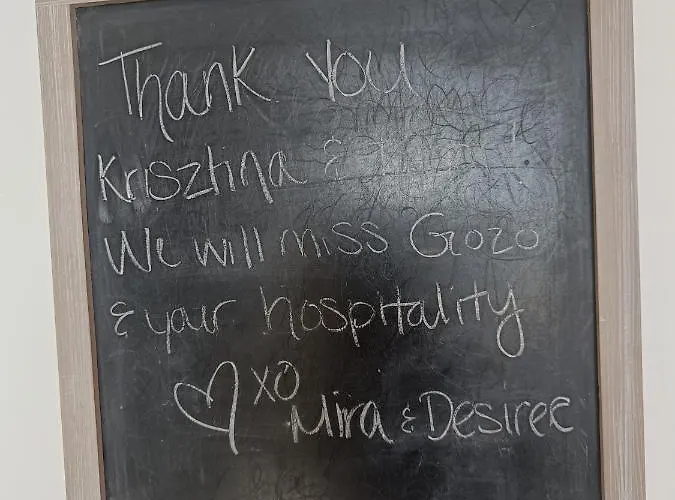 Thank you
Krisztina &
We will miss Gozo
& your hospitality
♡ xo
Mira & Desiree